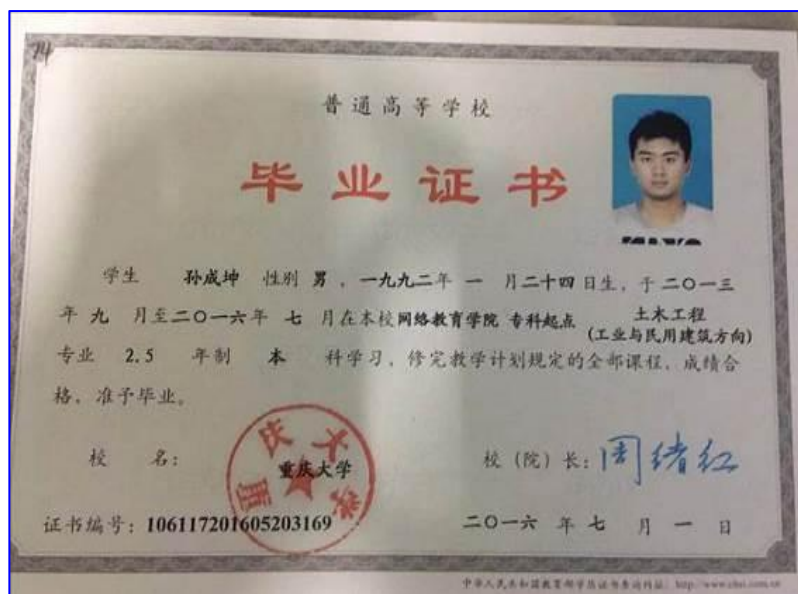 普通高等学校
毕业证书
学生 孙成坤 性别 男 ，一九九二年 一 月二十四日生，于二〇一三
年 九 月至二〇一六年 七 月在本校网络教育学院 专科起点 土木工程
(工业与民用建筑方向)
专业 2.5 年制 本 科学习，修完教学计划规定的全部课程，成绩合
格，准予毕业。
校 名： 重庆大学
校（院）长：周绪红
重庆大学
证书编号：106117201605203169
二〇一六 年 七 月 一 日
中华人民共和国教育部学历证书查询网址：http://www.chsi.com.cn